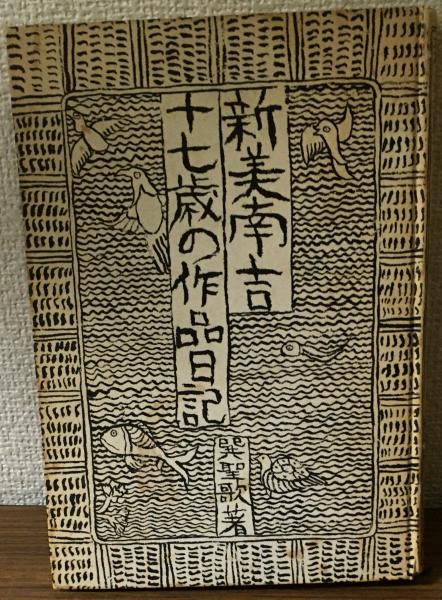 新美南吉
十七歳の作品日記
巽聖歌著